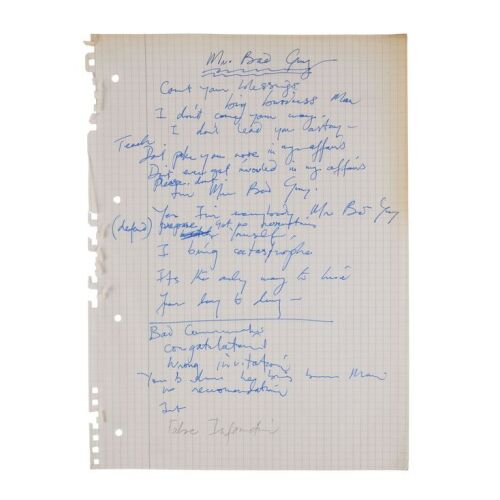 Mr. Bad Guy
Count your blessings
big business Man
I don't come your way
I don't lead you astray –
Teach
Don't poke your nose in my affairs
Don't ever get involved in my affairs
Please don't
I'm Mr. Bad Guy.
Yes I'm everybody Mr Bad Guy
(defend) prepare yourself
I bring catastrophe
It's the only way to live
From day to day –
Bad Communication
Congratulations
Wrong invitation
no recommendation
But
False Information